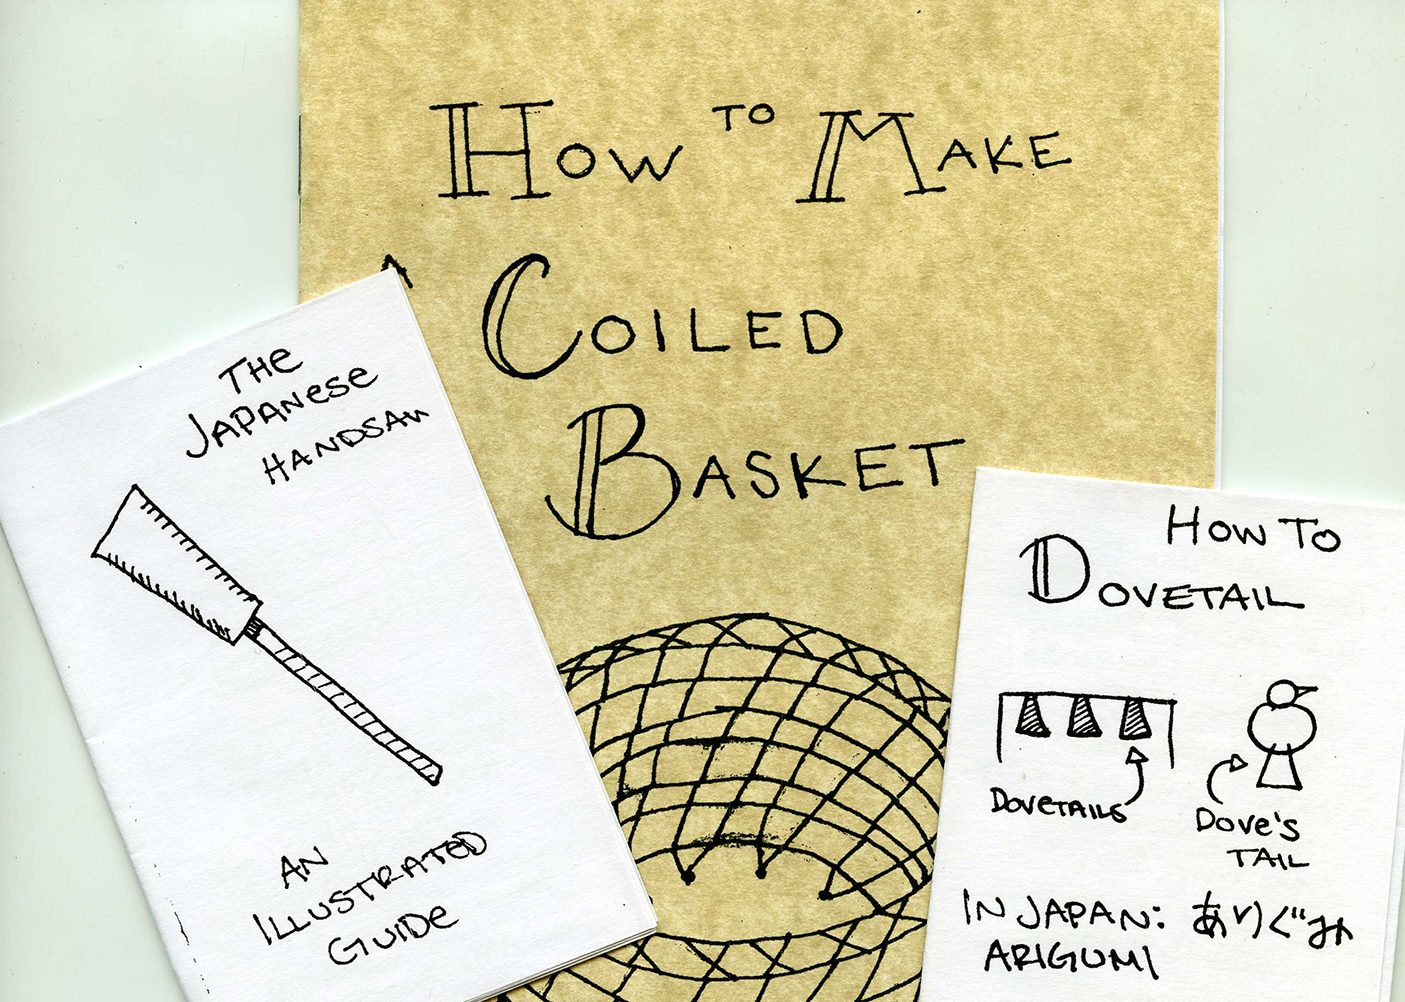 How to Make
A Coiled
Basket
The
Japanese
Handsaw
An
Illustrated
Guide
How To
Dovetail
Dovetails
Dove's
Tail
In Japan: ありぐみ
Arigumi